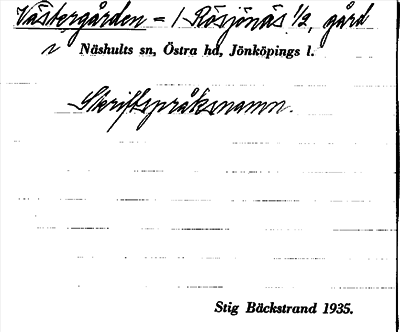 Västergården = 1 Rösjönäs 1/2, gård
i Näshults sn, Östra hd, Jönköpings l.
Skriftspråksnamn.
Stig Bäckstrand 1935.